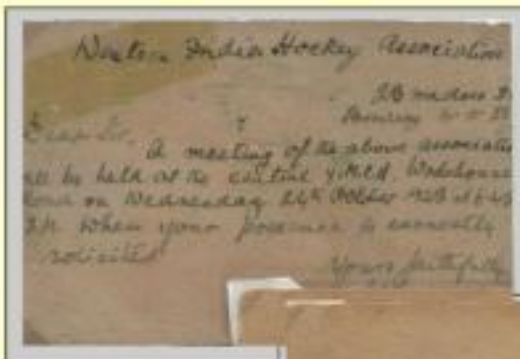 Western India Hockey Association
Dear Sir,
A meeting of the above association
be held at the central Y.M.C.A. Wodehouse
Road on Wednesday 24th October
when your presence is earnestly
solicited
Yours faithfully